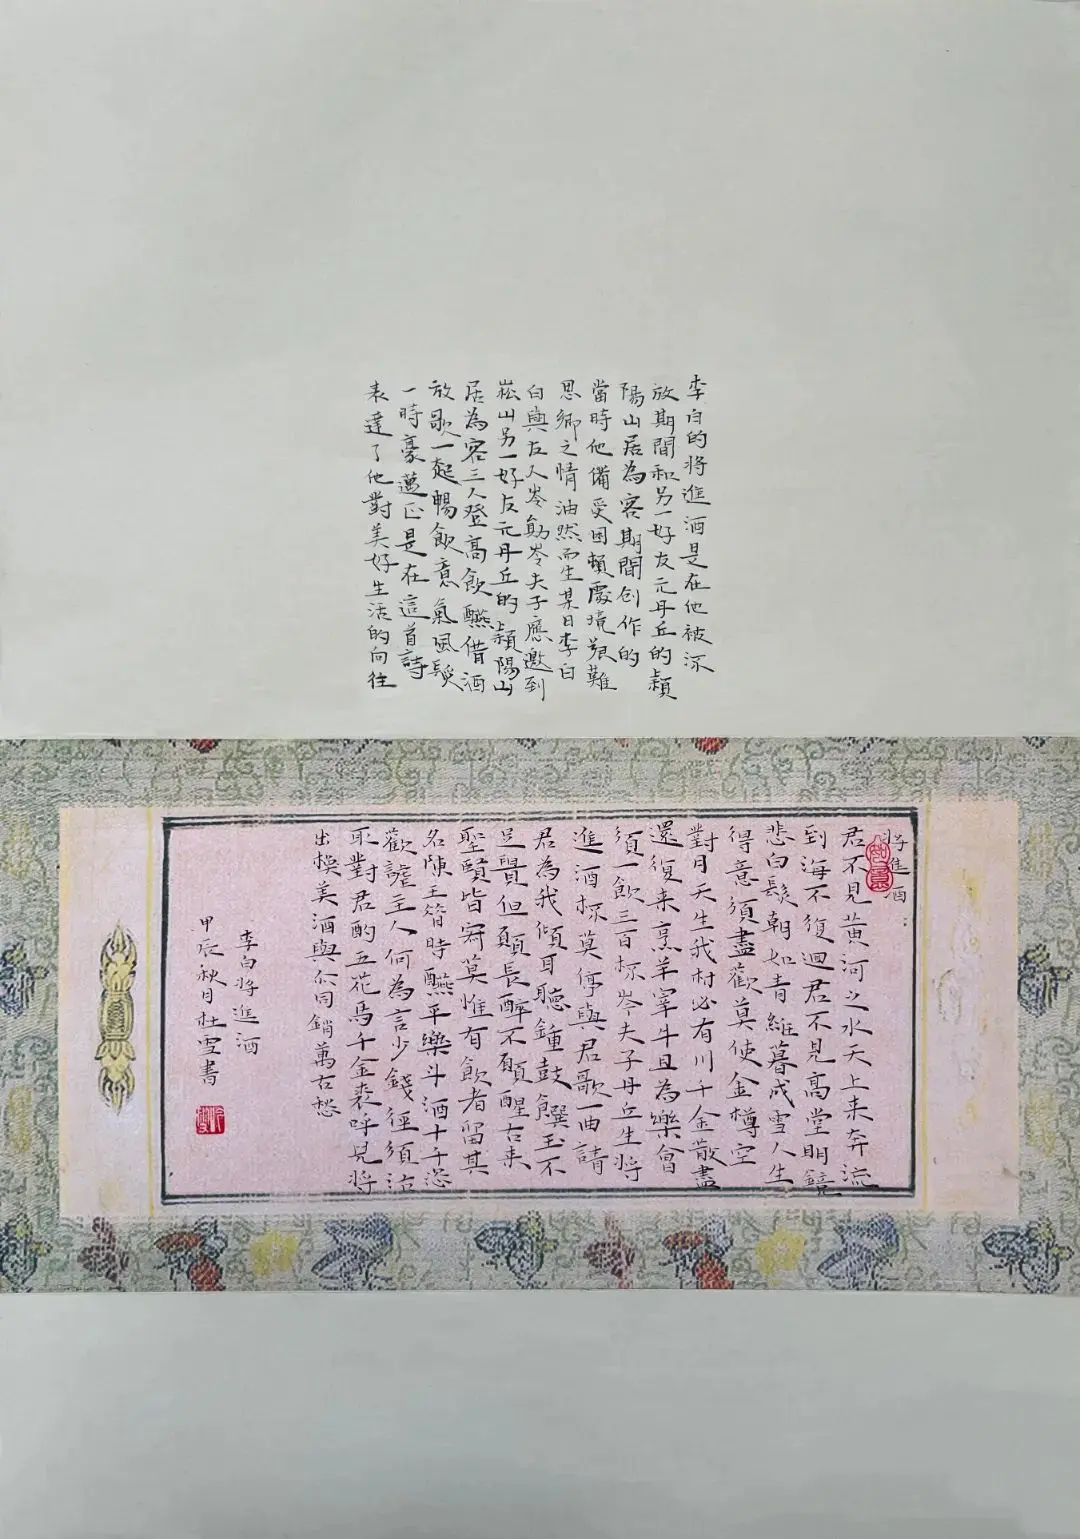 李白的將進酒是在他被流
放期間和另一好友元丹丘的潁
陽山居為客期間创作的
當時他備受困頓處境艰難
思鄉之情油然而生某日李白
白與友人岑勛岑夫子應邀到
崧山另一好友元丹丘的潁陽山
居為客三人登高飲醼借酒
放歌一起暢飲意氣風髮
一時豪邁正是在這首詩
表達了他對美好生活的向往
將進酒
君不見黃河之水天上来奔流
到海不復迴君不見高堂明鏡
悲白髮朝如青絲暮成雪人生
得意須盡歡莫使金樽空
對月天生我材必有用千金散盡
還復来烹羊宰牛且為樂會
須一飲三百杯岑夫子丹丘生將
進酒杯莫停與君歌一曲請
君為我傾耳聽鍾鼓饌玉不
足貴但願長醉不願醒古来
聖賢皆寂莫惟有飲者留其
名陳王昔時醼平樂斗酒十千恣
歡謔主人何為言少錢徑須沽
取對君酌五花馬千金裘呼兒將
出換美酒與尒同銷萬古愁
李白將進酒
甲辰秋月杜雪書